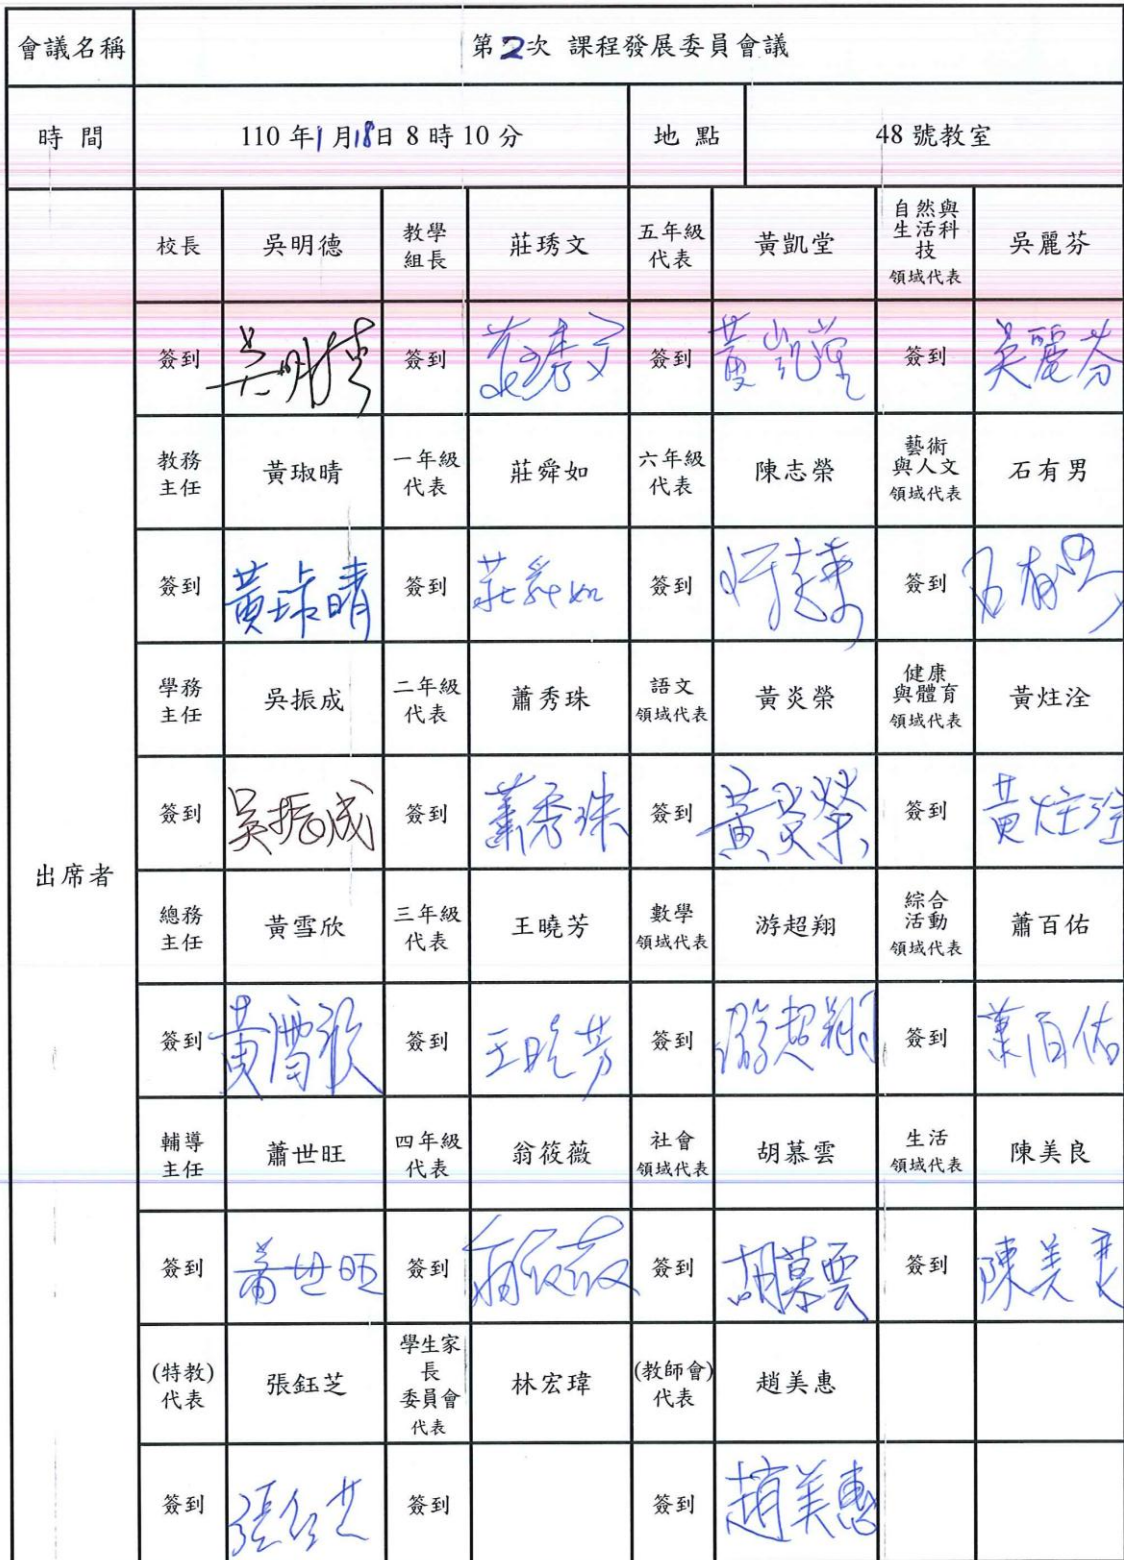 會議名稱 第2次 課程發展委員會議
時間 110年1月18日8時10分 地點 48號教室
出席者
校長 吳明德 教學組長 莊琇文 五年級代表 黃凱堂 自然與生活科技領域代表 吳麗芬
簽到 吳明德 簽到 莊琇文 簽到 黃凱堂 簽到 吳麗芬
教務主任 黃琡晴 一年級代表 莊舜如 六年級代表 陳志榮 藝術與人文領域代表 石有男
簽到 黃琡晴 簽到 莊舜如 簽到 陳志榮 簽到 石有男
學務主任 吳振成 二年級代表 蕭秀珠 語文領域代表 黃炎榮 健康與體育領域代表 黃炷淦
簽到 吳振成 簽到 蕭秀珠 簽到 黃炎榮 簽到 黃炷淦
總務主任 黃雪欣 三年級代表 王曉芳 數學領域代表 游超翔 綜合活動領域代表 蕭百佑
簽到 黃雪欣 簽到 王曉芳 簽到 游超翔 簽到 蕭百佑
輔導主任 蕭世旺 四年級代表 翁筱薇 社會領域代表 胡慕雲 生活領域代表 陳美良
簽到 蕭世旺 簽到 翁筱薇 簽到 胡慕雲 簽到 陳美良
(特教)代表 張鈺芝 學生家長委員會代表 林宏瑋 (教師會)代表 趙美惠
簽到 張鈺芝 簽到 簽到 趙美惠